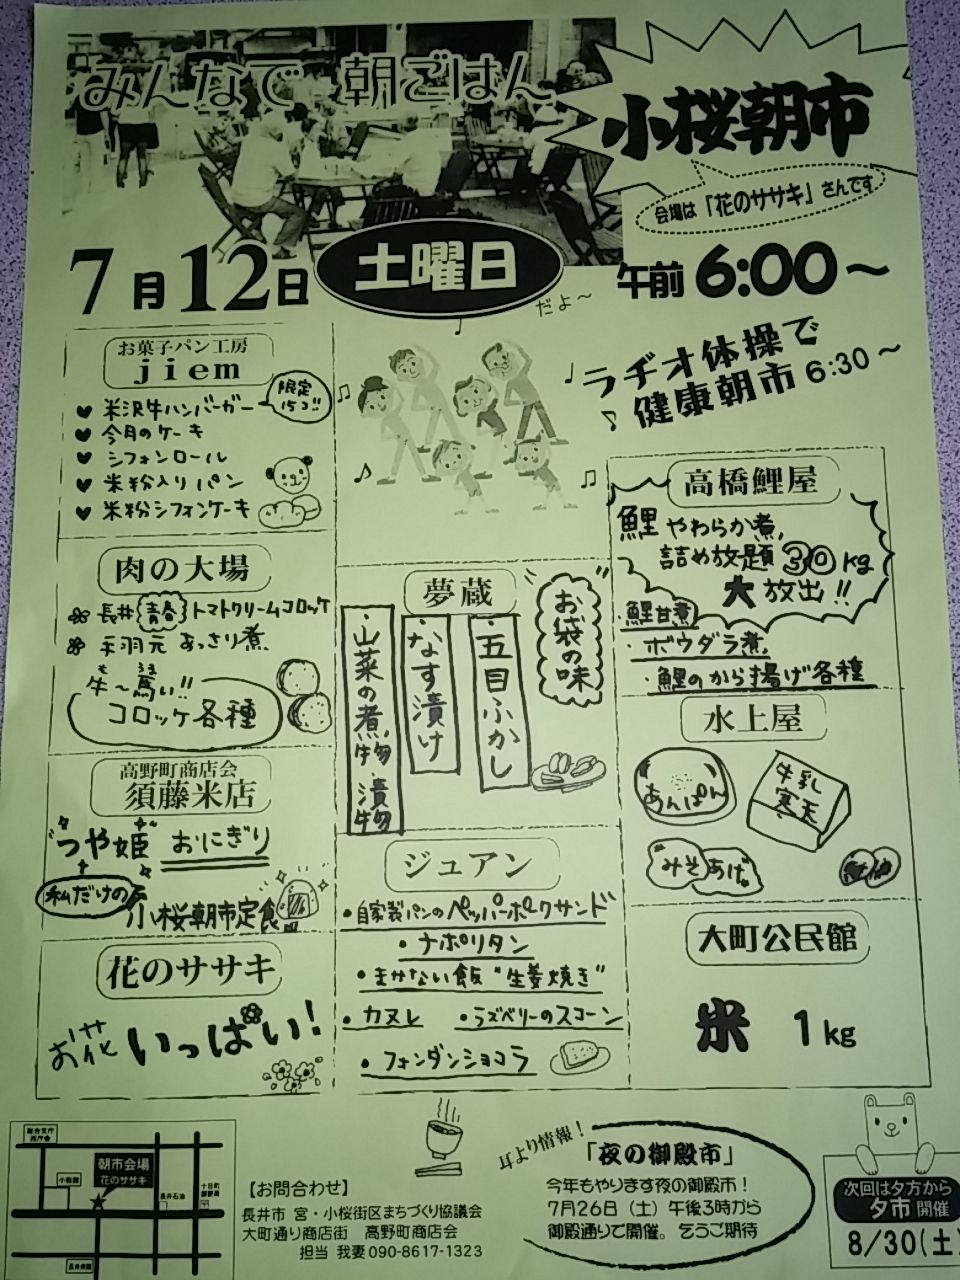 みんなで 朝ごはん
小桜朝市
会場は「花のササキ」さんです
7月12日 土曜日 午前 6:00～
だよ～
ラヂオ体操で
健康朝市 6:30～
お菓子パン工房
jiem
♥ 米沢牛ハンバーガー
限定
15コ!!
♥ 今月のケーキ
♥ シフォンロール
♥ 米粉入りパン
♥ 米粉シフォンケーキ
肉の大場
長井青春トマトクリームコロッケ
手羽元あっさり煮
牛～篤い!!
うま
コロッケ各種
高野町商店会
須藤米店
"つや姫" おにぎり
私だけの
小桜朝市定食
花のササキ
お花いっぱい!
夢蔵
お袋の味
・五目ふかし
・なす漬け
・山菜の煮物・漬物
ジュアン
・自家製パンのペッパーポークサンド
・ナポリタン
・まかない飯“生姜焼き”
・カヌレ ・ラズベリーのスコーン
・フォンダンショコラ
高橋鯉屋
鯉やわらか煮,
詰め放題 30kg
大放出!!
・鯉甘煮
・ボウダラ煮,
・鯉のから揚げ各種
水上屋
あんぱん
牛乳
寒天
みそ あげ
大町公民館
米 1kg
朝市会場
花のササキ
小桜館
長井石油
十日町
郵便局
長井病院
【お問合わせ】
長井市 宮・小桜街区まちづくり協議会
大町通り商店街 高野町商店会
担当 我妻090-8617-1323
耳より情報！
「夜の御殿市」
今年もやります夜の御殿市！
7月26日（土）午後3時から
御殿通りで開催。乞うご期待
次回は夕方から
夕市 開催
8/30(土)